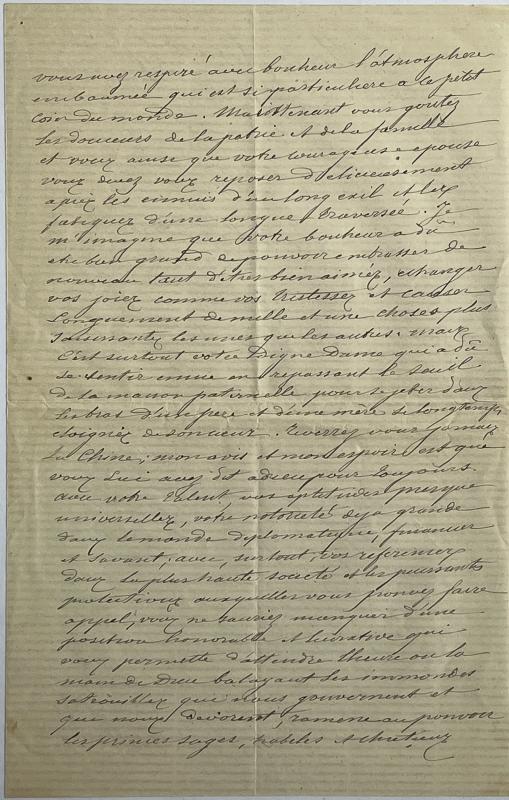 vous avez respiré avec bonheur l'atmosphere
embaumée qui est si particuliere a ce petit
coin du monde. Maintenant vous goutez
les douceurs de la patrie et de la famille
et vous ainsi que votre courageuse epouse
vous devez vous reposer delicieusement
apres les ennuis d'un long exil et les
fatigues d'une longue traversée. Je
m'imagine que votre bonheur a dû
etre bien grand de pouvoir embrasser de
nouveau tant d'etres bien aimez, echanger
vos joies comme vos tristesses et causer
longuement de mille et une choses plus
les unes que les autres. Mais
c'est surtout votre Digne Dame qui a dû
se sentir emue en repassant le seuil
de la maison paternelle pour se jeter dans
les bras d'un pere et d'une mere si longtemps
eloignez de son cœur. Reverrez vous jamais
la Chine; mon avis et mon espoir est que
vous lui avez dit adieu pour toujours.
avec votre talent, vos aptitudes presque
universelles, votre notorieté deja grande
dans le monde diplomatique, financier
et savant; avec, surtout vos references
dans la plus haute societé et les puissants
protecteurs auxquelles vous pouvez faire
appel, vous ne sauriez manquer d'une
position honorable et lucrative qui
vous permette d'attendre l'heure ou la
main de Dieu balayant les immondes
qui nous gouvernent et
qui nous devorent, ramene au pouvoir
les princes sages, habiles et chretiens